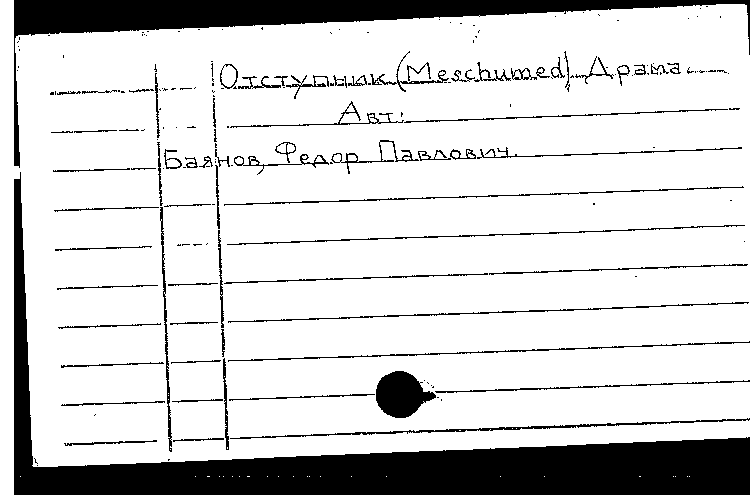 Отступник (Meschumed). Драма.
Авт:
Баянов, Федор Павлович.